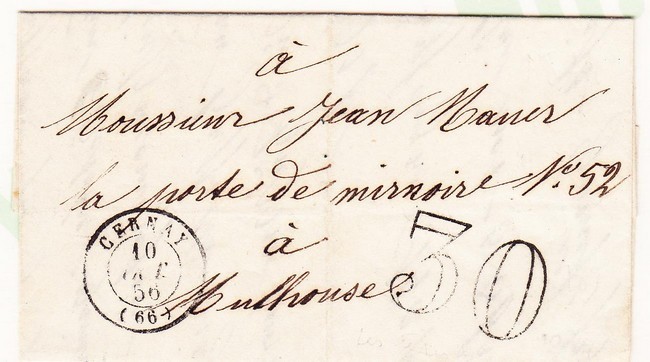 à
Moussieur Jean Mauer
la porte de mirnoire No. 52
à
Mulhouse
30
CERNAY
10
56
(66)